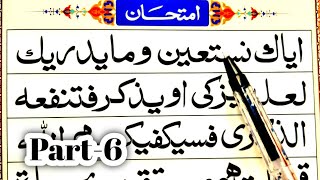 امتحان
اياك نستعين وما يدريك
لعله يزكى او يذكر فتنفعه
الذكرى فسيكفيكهم الله
Part-6